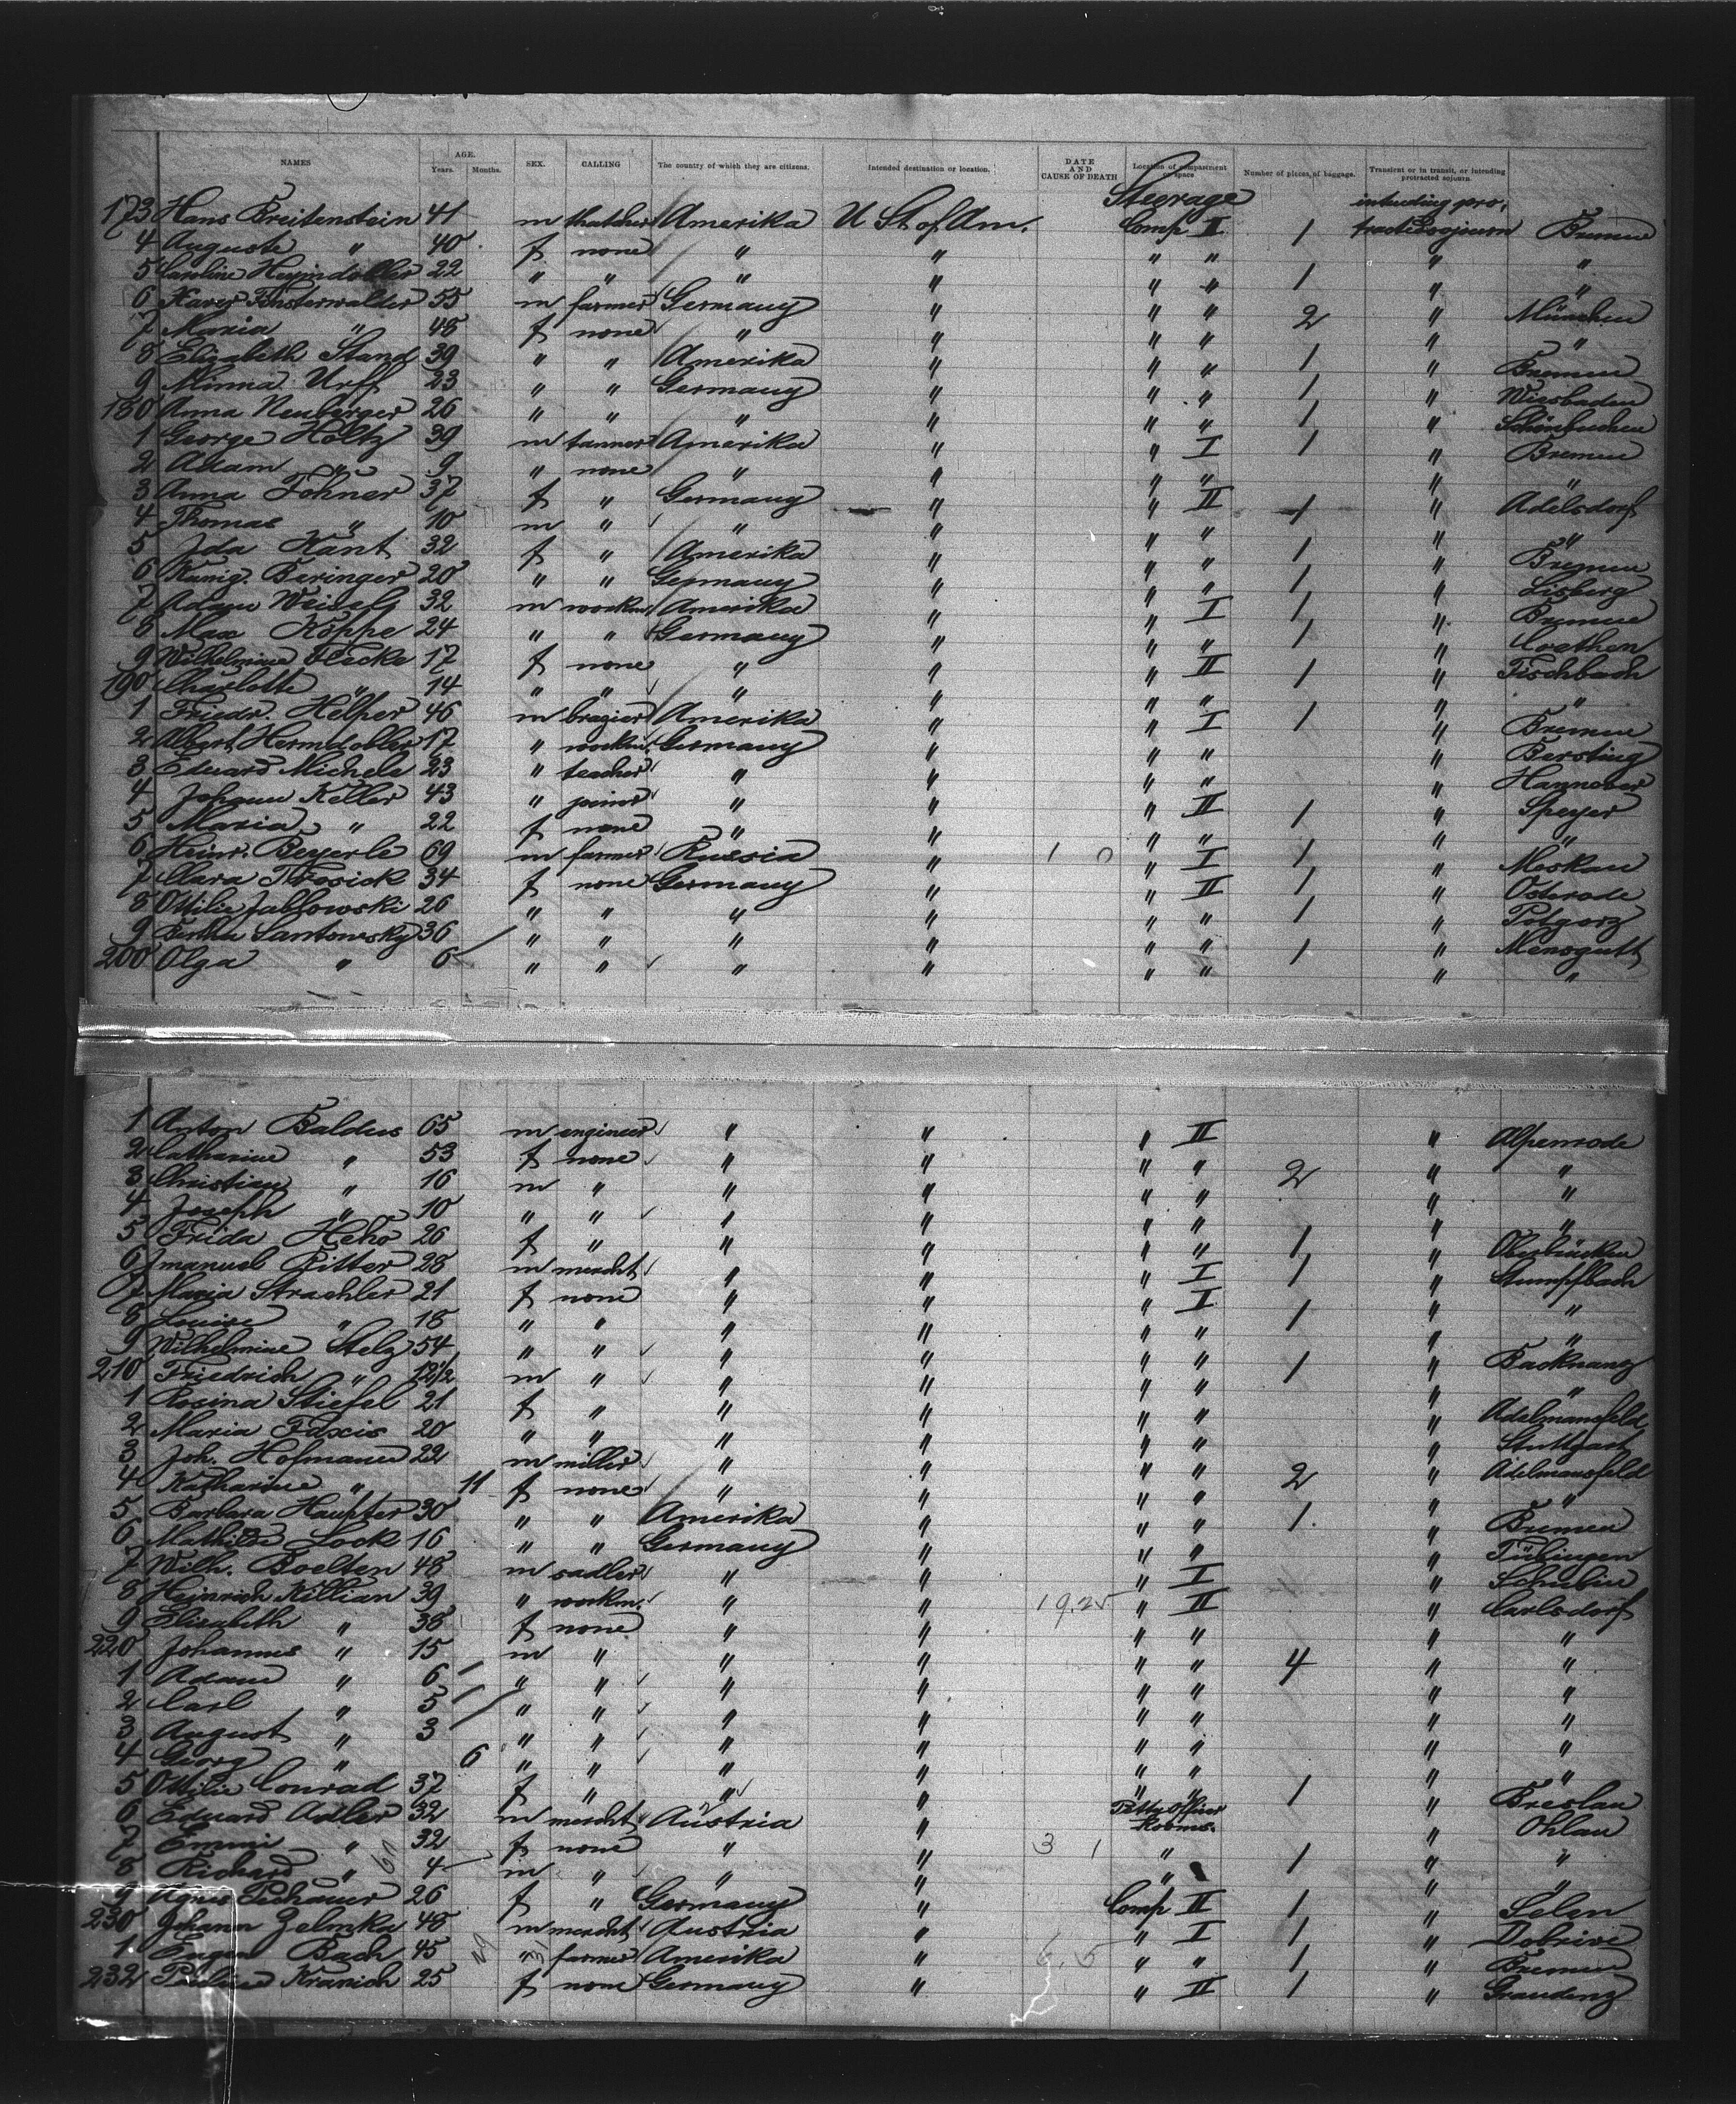 NAMES AGE. Years. Months. SEX. CALLING The country of which they are citizens. Intended destination or location. DATE AND CAUSE OF DEATH Location of compartment or space Number of pieces of baggage. Transient or in transit, or intending protracted sojourn.
Steerage intending pro,
173 Hans Breitenstein 41 m thatcher Amerika U St of Am. Comp II 1 tracted sojourn Bremen
4 Auguste " 40 f none " " " " " "
5 Caroline 22 " " " " " " 1 " "
6 Xaver Finsterwalder 55 m farmer Germany " " " 2 " München
7 Maria " 48 f none " " " " " "
8 Elizabeth Stand 39 " " Amerika " " " 1 " Bremen
9 Minna Urff 23 " " Germany " " " 1 " Wiesbaden
180 Anna Neuberger 26 " " " " " " 1 "
1 George Holtz 39 m tanner Amerika " " I 1 " Bremen
2 Adam " 9 " none " " " " " "
3 Anna Fohner 37 f " Germany " " II 1 " Adelsdorf
4 Thomas " 10 m " " " " " " "
5 Ida Kant 32 f " Amerika " " " 1 " Bremen
6 Kunig. Beringer 20 " " Germany " " " 1 " Lisberg
7 Adam 32 m workm. Amerika " " I 1 " Bremen
8 Max Köppe 24 " " Germany " " " 1 " Coethen
9 Wilhelmine Flecke 17 f none " " " II 1 " Fischbach
190 Charlotte " 14 " " " " " " " "
1 Friedr. Helper 46 m brazier Amerika " " I 1 " Bremen
2 Albert 17 " workm. Germany " " " " Bersting
3 Eduard Michele 23 " teacher " " " " " Hannover
4 Johann Keller 43 " joiner " " " II 1 " Speyer
5 Maria " 22 f none " " " " " "
6 Heinr. Beyerle 69 m farmer Russia " 1 0 " I 1 " Moskau
7 Clara 34 f none Germany " " II 1 " Osterode
8 Ottilie Jablowski 26 " " " " " " 1 " Potgorz
9 Bertha Santowsky 36 " " " " " " 1 " Mensguth
200 Olga " 6 " " " " " " " "
1 Anton Baldus 65 m engineer " " " II " Alpenrode
2 Catharine " 53 f none " " " " 2 " "
3 Christian " 16 m " " " " " " "
4 Joseph " 10 " " " " " " " "
5 Frida 26 f " " " " " 1 "
6 Imanuel Ritter 28 m mercht. " " " I 1 " Stumpfbach
7 Maria Straehler 21 f none " " " II " "
8 Louise " 18 " " " " " " 1 " "
9 Wilhelmine Stelz 54 " " " " " " " Backnang
210 Friedrich " 12½ m " " " " " 1 " "
1 Rosina Stiefel 21 f " " " " " " Adelmansfeld
2 Maria 20 " " " " " " " Stuttgart
3 Joh. Hofmann 22 m miller " " " " 2 " Adelmansfeld
4 Katharine " 11 f none " " " " " "
5 Barbara Haupter 30 " " Amerika " " " 1 " Bremen
6 Mathilde Lock 16 " " Germany " " " " Tübingen
7 Wilh. Boelten 48 m sadler " " " I " Schubin
8 Heinrich Killian 39 " workm. " " 19.25 " II " Carlsdorf
9 Elisabeth " 38 f none " " " " " "
220 Johannes " 15 m " " " " " 4 " "
1 Adam " 6 " " " " " " " "
2 Carl " 5 " " " " " " " "
3 August " 3 " " " " " " " "
4 Georg " 6 " " " " " " " "
5 Ottilie Conrad 37 f " " " " " 1 " Breslau
6 Eduard Adler 32 m mercht. Austria " Petty Officer Rooms. " Ohlau
7 Emmi " 32 f none " " 3 1 " 1 " "
8 Richard " 4 m " " " " " "
9 Agnes 26 f " Germany " Comp II 1 " Selen
230 Johann Zelmka 48 m mercht. Austria " " I 1 "
1 Eugen Bach 45 " farmer Amerika " 6.5 " " 1 " Bremen
232 Pauline Kranich 25 f none Germany " " II 1 " Graudenz